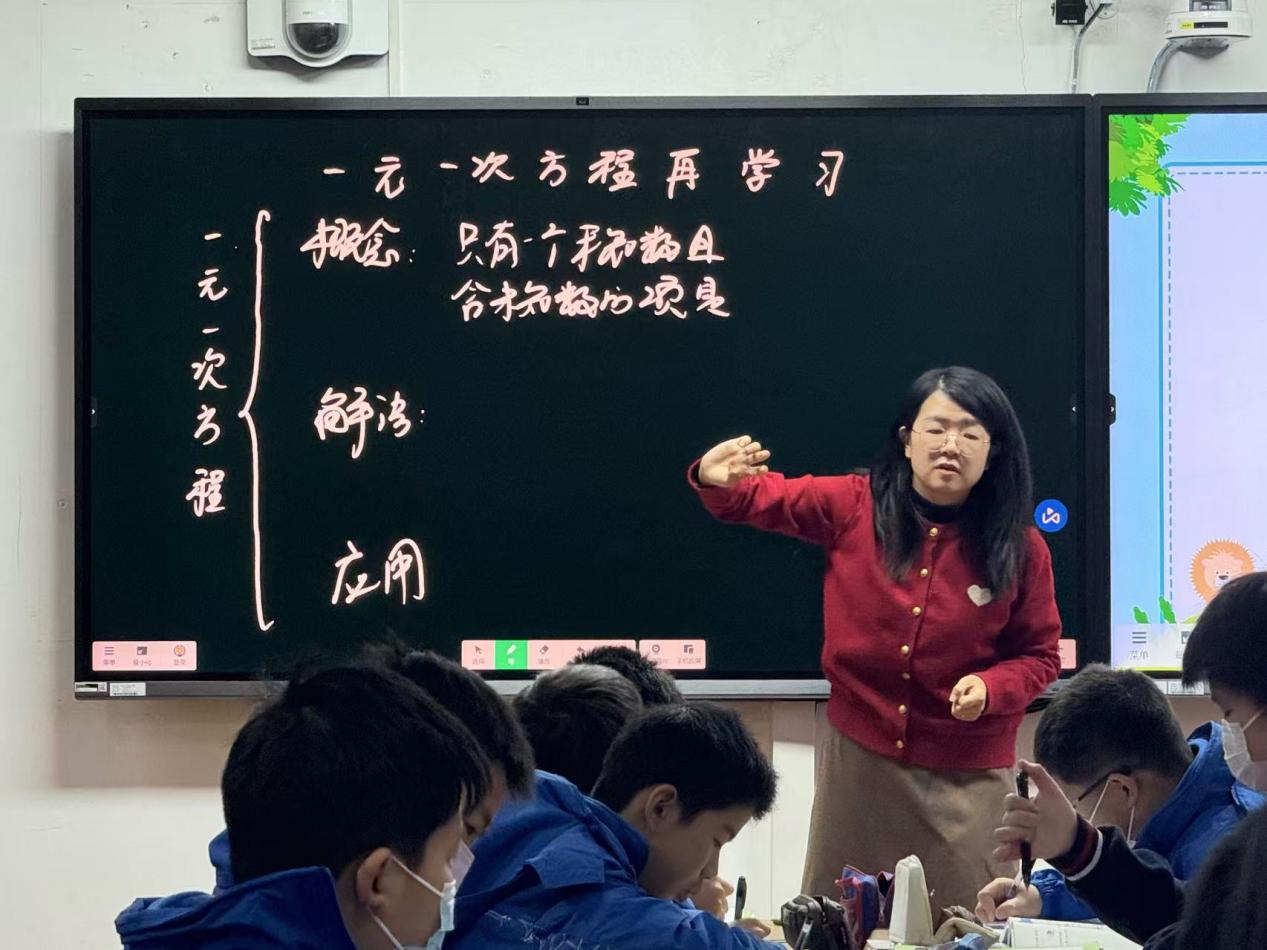 一元一次方程再学习
一元一次方程
概念：只有一个未知数且
含未知数的项是
解法：
应用
菜单
最小化
登录
选择
笔
菜单